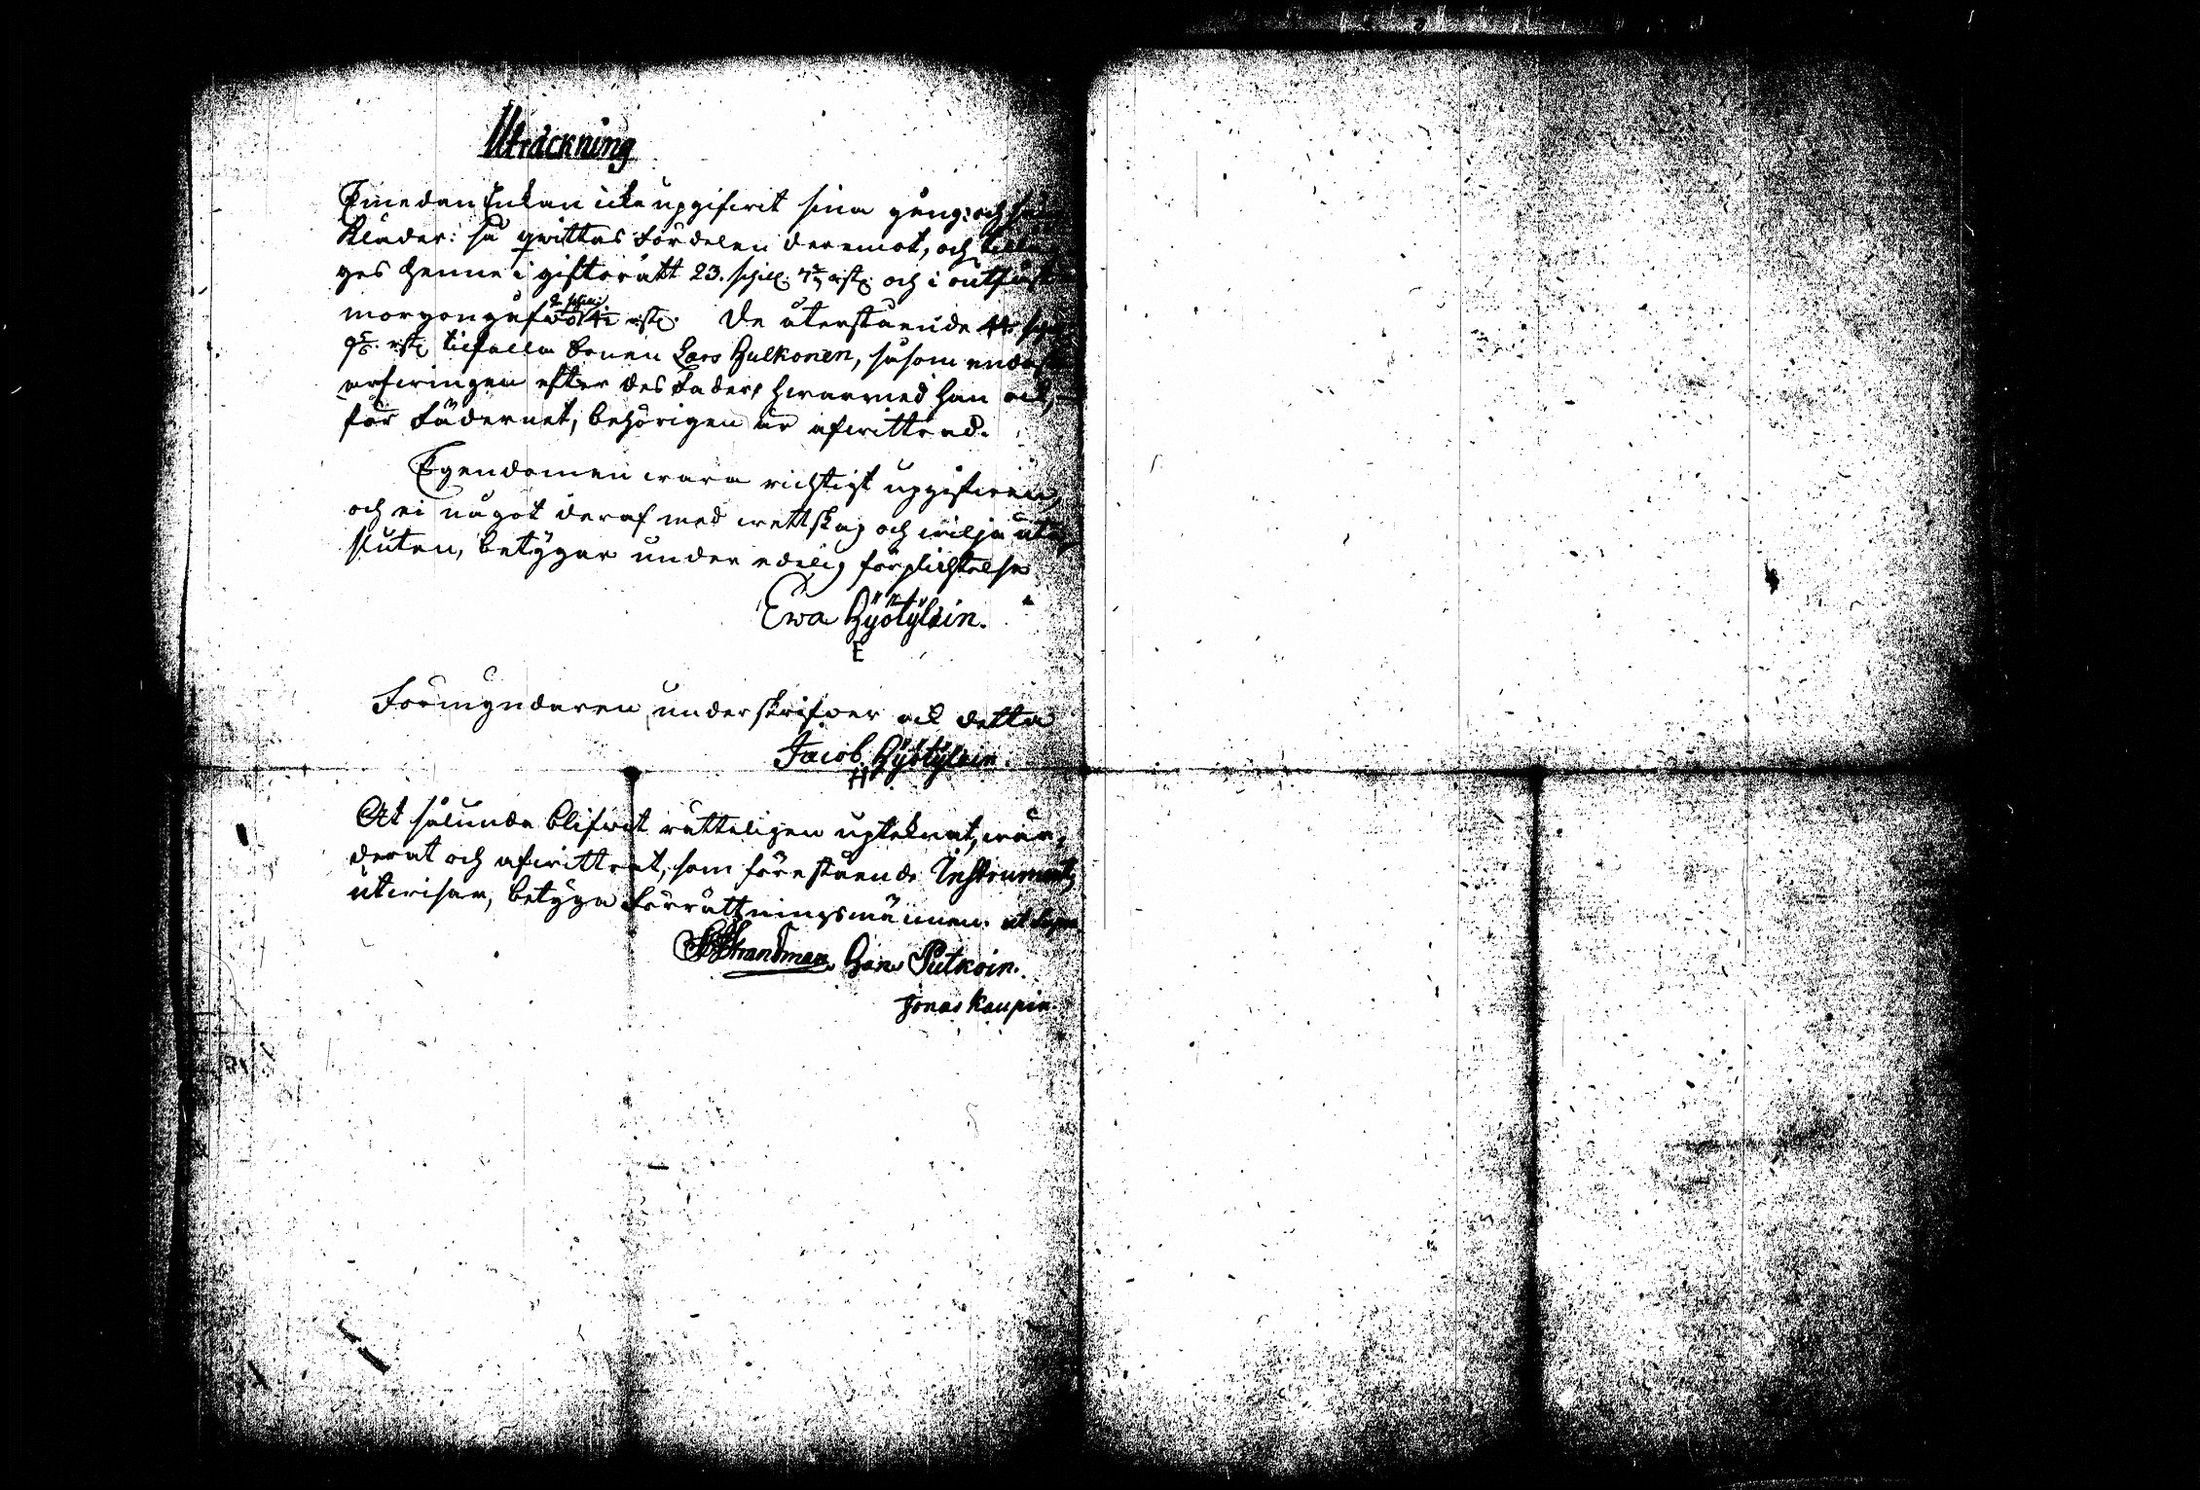 Uträckning
Emedan Enkan icke upgifwit sina gång: och
Kläder: så qwittas fördelen deremot, och
ges henne i giftorätt 23. schill. rst: och i
morgongåfwo rst: De återstående
rst: tilfalla Sonen Lars Hulkonen, såsom
arfwingen efter des Fader, hwarmed han ock,
för Fädernet, behörigen är afwittrad.
Egendomen wara richtigt upgifwen,
och ei något deraf med wettskap och wilja ute
sluten, betygar under edelig förplichtelse
Ewa Hyötyläin.
E
Förmyndaren underskrifwer ock detta
Jacob Hyötyläin.
H
At sålunda blifwit rätteligen upteknat, wär,
derat och afwittrat, som förestående Instrument
utwisar, betyga Förrättningsmännen.
Strandman Hans Putkoin.
Jonas Kaupin